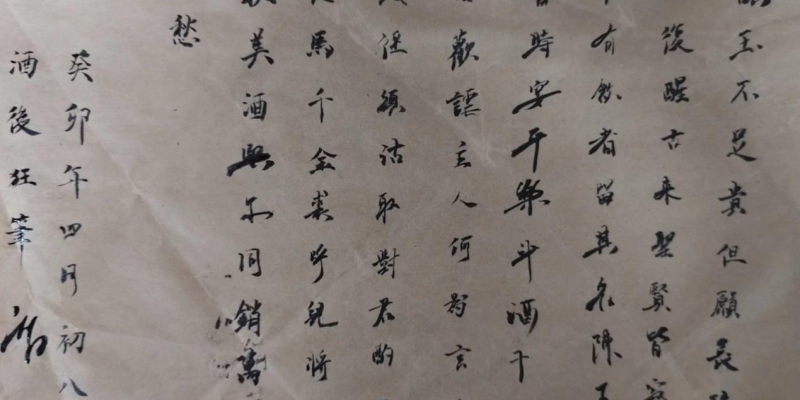 玉不足貴但願長
復醒古來聖賢皆寂
有飲者留其名陳王
時宴平樂斗酒十
歡謔主人何為言
徑須沽取對君酌
馬千金裘呼兒將
美酒與尔同銷萬
愁
癸卯年四月初八
酒後狂筆